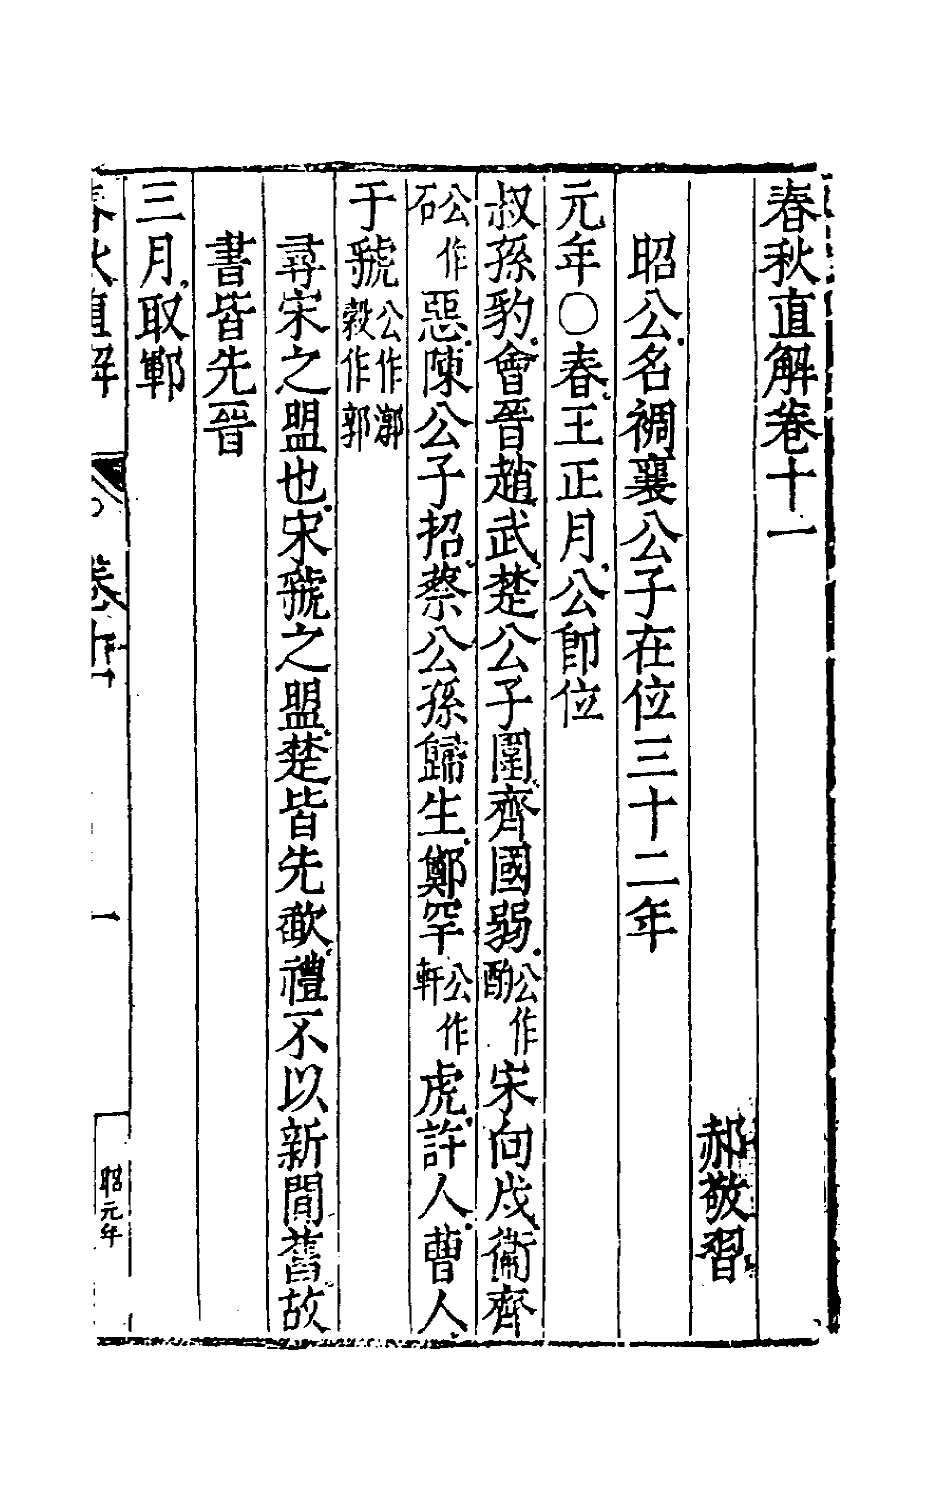 春秋直解卷十一
郝敬習
昭公名禂襄公子在位三十二年
元年〇春王正月公即位
叔孫豹會晉趙武楚公子圍齊國弱公作酌宋向戌衛齊
公作石惡陳公子招蔡公孫歸生鄭罕公作軒虎許人曹人
于虢公作漷穀作郭
尋宋之盟也宋虢之盟楚皆先歃禮不以新間舊故
書皆先晉
三月取鄆
春秋直解
卷十一
一
昭元年